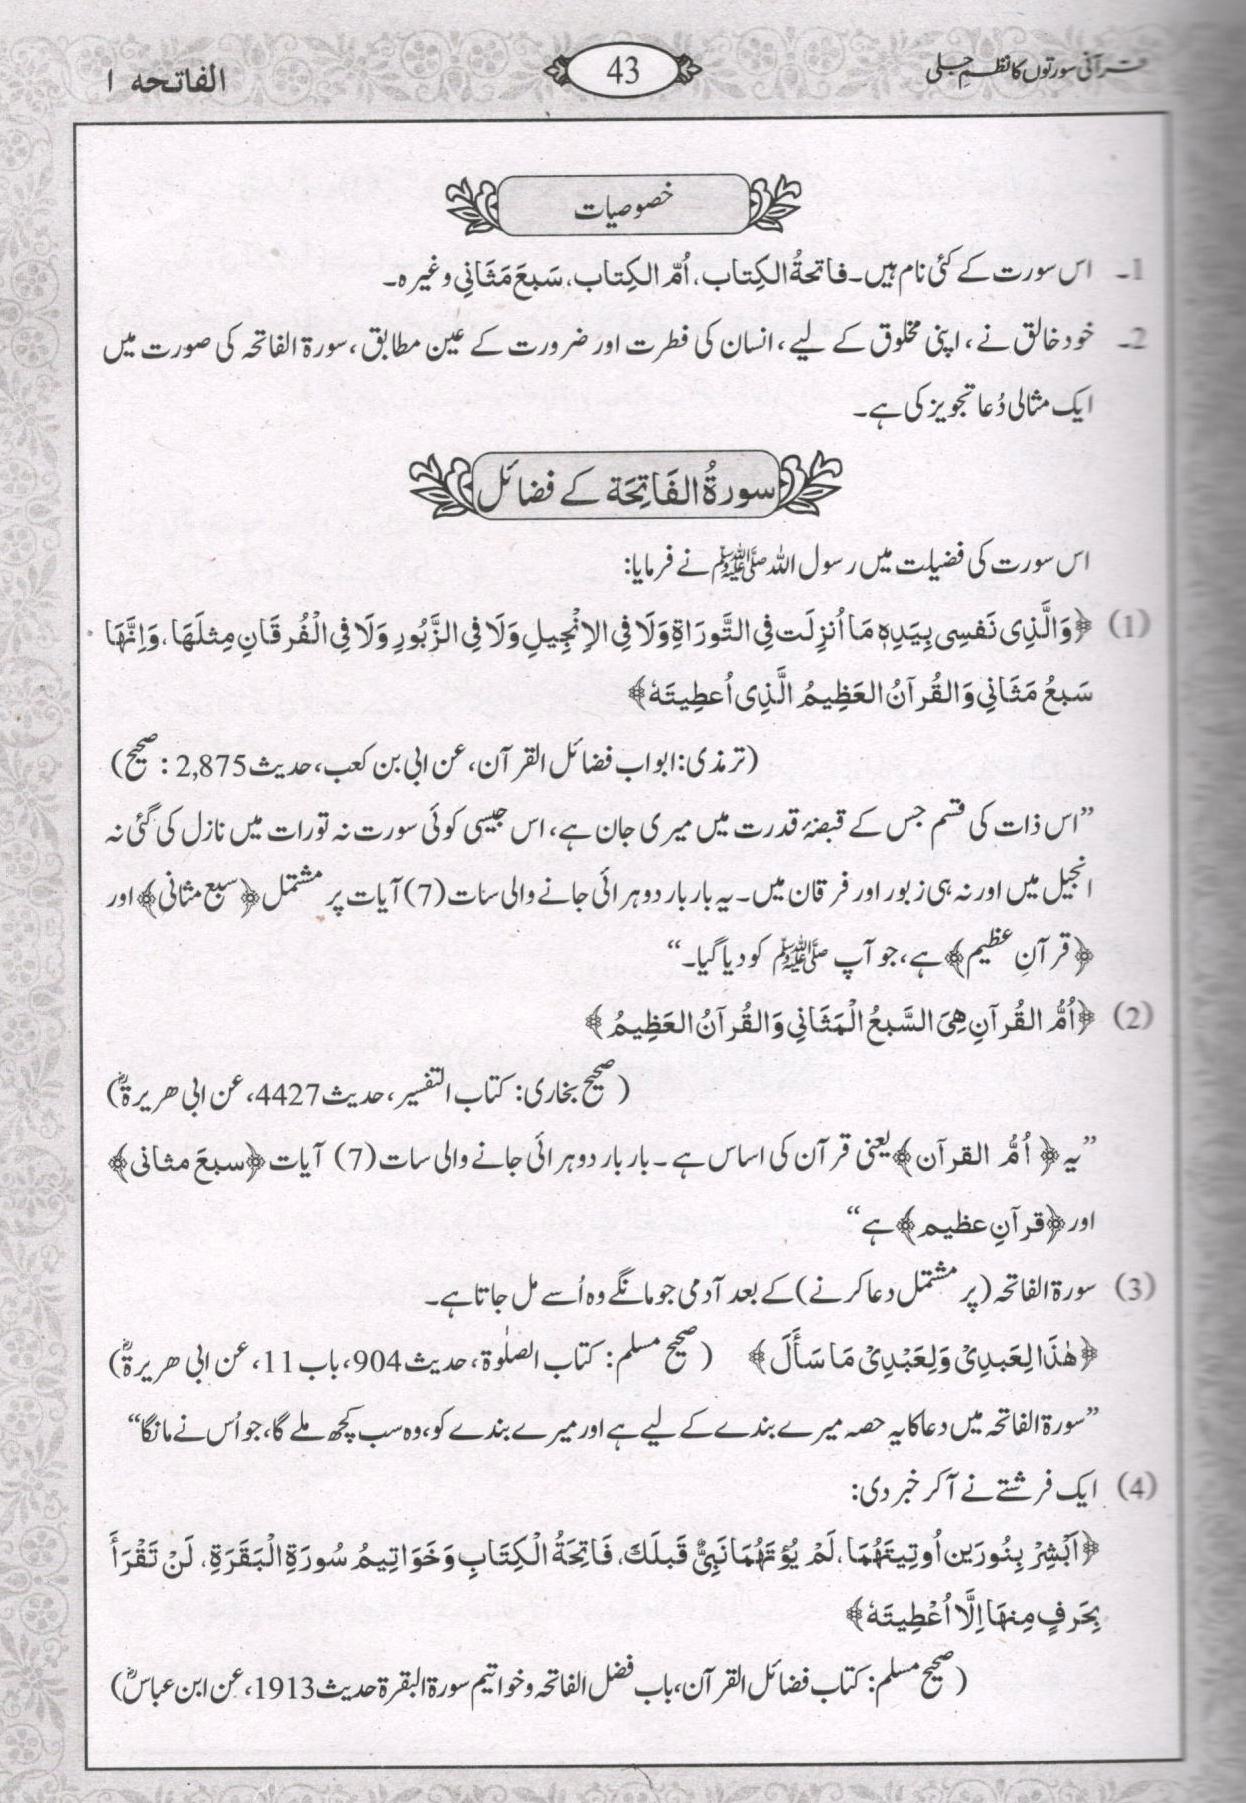 قرآنی سورتوں کا نظمِ جلی
43
الفاتحہ ۱
خصوصیات
1۔ اس سورت کے کئی نام ہیں۔ فاتحةُ الکِتاب، اُمّ الکِتاب، سَبعَ مَثَانِی وغیرہ۔
2۔ خود خالق نے ، اپنی مخلوق کے لیے ، انسان کی فطرت اور ضرورت کے عین مطابق ، سورۃ الفاتحہ کی صورت میں
ایک مثالی دُعا تجویز کی ہے۔
سورةُ الفَاتِحَة کے فضائل
اس سورت کی فضیلت میں رسول اللہ ﷺ نے فرمایا:
(1) ﴿وَالَّذِی نَفسِی بِیَدِہٖ مَا اُنزِلَت فِی التَّورَاةِ وَلَا فِی الاِنْجِیلِ وَلَا فِی الزَّبُورِ وَلَا فِی الْفُرقَانِ مِثلَهَا، وَاِنَّهَا
سَبعُ مَثَانِی وَالقُرآنُ العَظِیمُ الَّذِی اُعطِیتَهٗ﴾
(ترمذی: ابواب فضائل القرآن، عن ابی بن کعب، حدیث 2,875 : صحیح)
”اس ذات کی قسم جس کے قبضۂ قدرت میں میری جان ہے، اس جیسی کوئی سورت نہ تورات میں نازل کی گئی نہ
انجیل میں اور نہ ہی زبور اور فرقان میں۔ یہ بار بار دوہرائی جانے والی سات (7) آیات پر مشتمل ﴿سبع مثانی﴾ اور
﴿قرآنِ عظیم﴾ ہے، جو آپ ﷺ کو دیا گیا۔“
(2) ﴿اُمُّ القُرآنِ هِیَ السَّبعُ الْمَثَانِی وَالقُرآنُ العَظِیمُ﴾
(صحیح بخاری: کتاب التفسیر، حدیث 4427، عن ابی ھریرۃؓ)
”یہ ﴿اُمُّ القرآن﴾ یعنی قرآن کی اساس ہے ۔ بار بار دوہرائی جانے والی سات (7) آیات ﴿سبعَ مثانی﴾
اور ﴿قرآنِ عظیم﴾ ہے“
(3) سورۃ الفاتحہ (پر مشتمل دعا کرنے) کے بعد آدمی جو مانگے وہ اُسے مل جاتا ہے۔
﴿هٰذَا لِعَبدِیْ وَلِعَبْدِیْ مَا سَأَلَ﴾ (صحیح مسلم: کتاب الصلٰوۃ، حدیث 904، باب 11، عن ابی ھریرۃؓ)
”سورۃ الفاتحہ میں دعا کا یہ حصہ میرے بندے کے لیے ہے اور میرے بندے کو، وہ سب کچھ ملے گا، جو اُس نے مانگا“
(4) ایک فرشتے نے آکر خبر دی:
﴿اَبْشِرْ بِنُورَینِ اُوتِیتَهُمَا، لَمْ یُؤْتَهُمَا نَبِیٌّ قَبلَكَ، فَاتِحَةُ الْكِتَابِ وَخَوَاتِیمُ سُورَةِ الْبَقَرَةِ، لَنْ تَقْرَأَ
بِحَرفٍ مِنهَا اِلَّا اُعْطِیتَهٗ﴾
(صحیح مسلم: کتاب فضائل القرآن، باب فضل الفاتحہ و خواتیم سورۃ البقرۃ حدیث 1913، عن ابن عباسؓ)